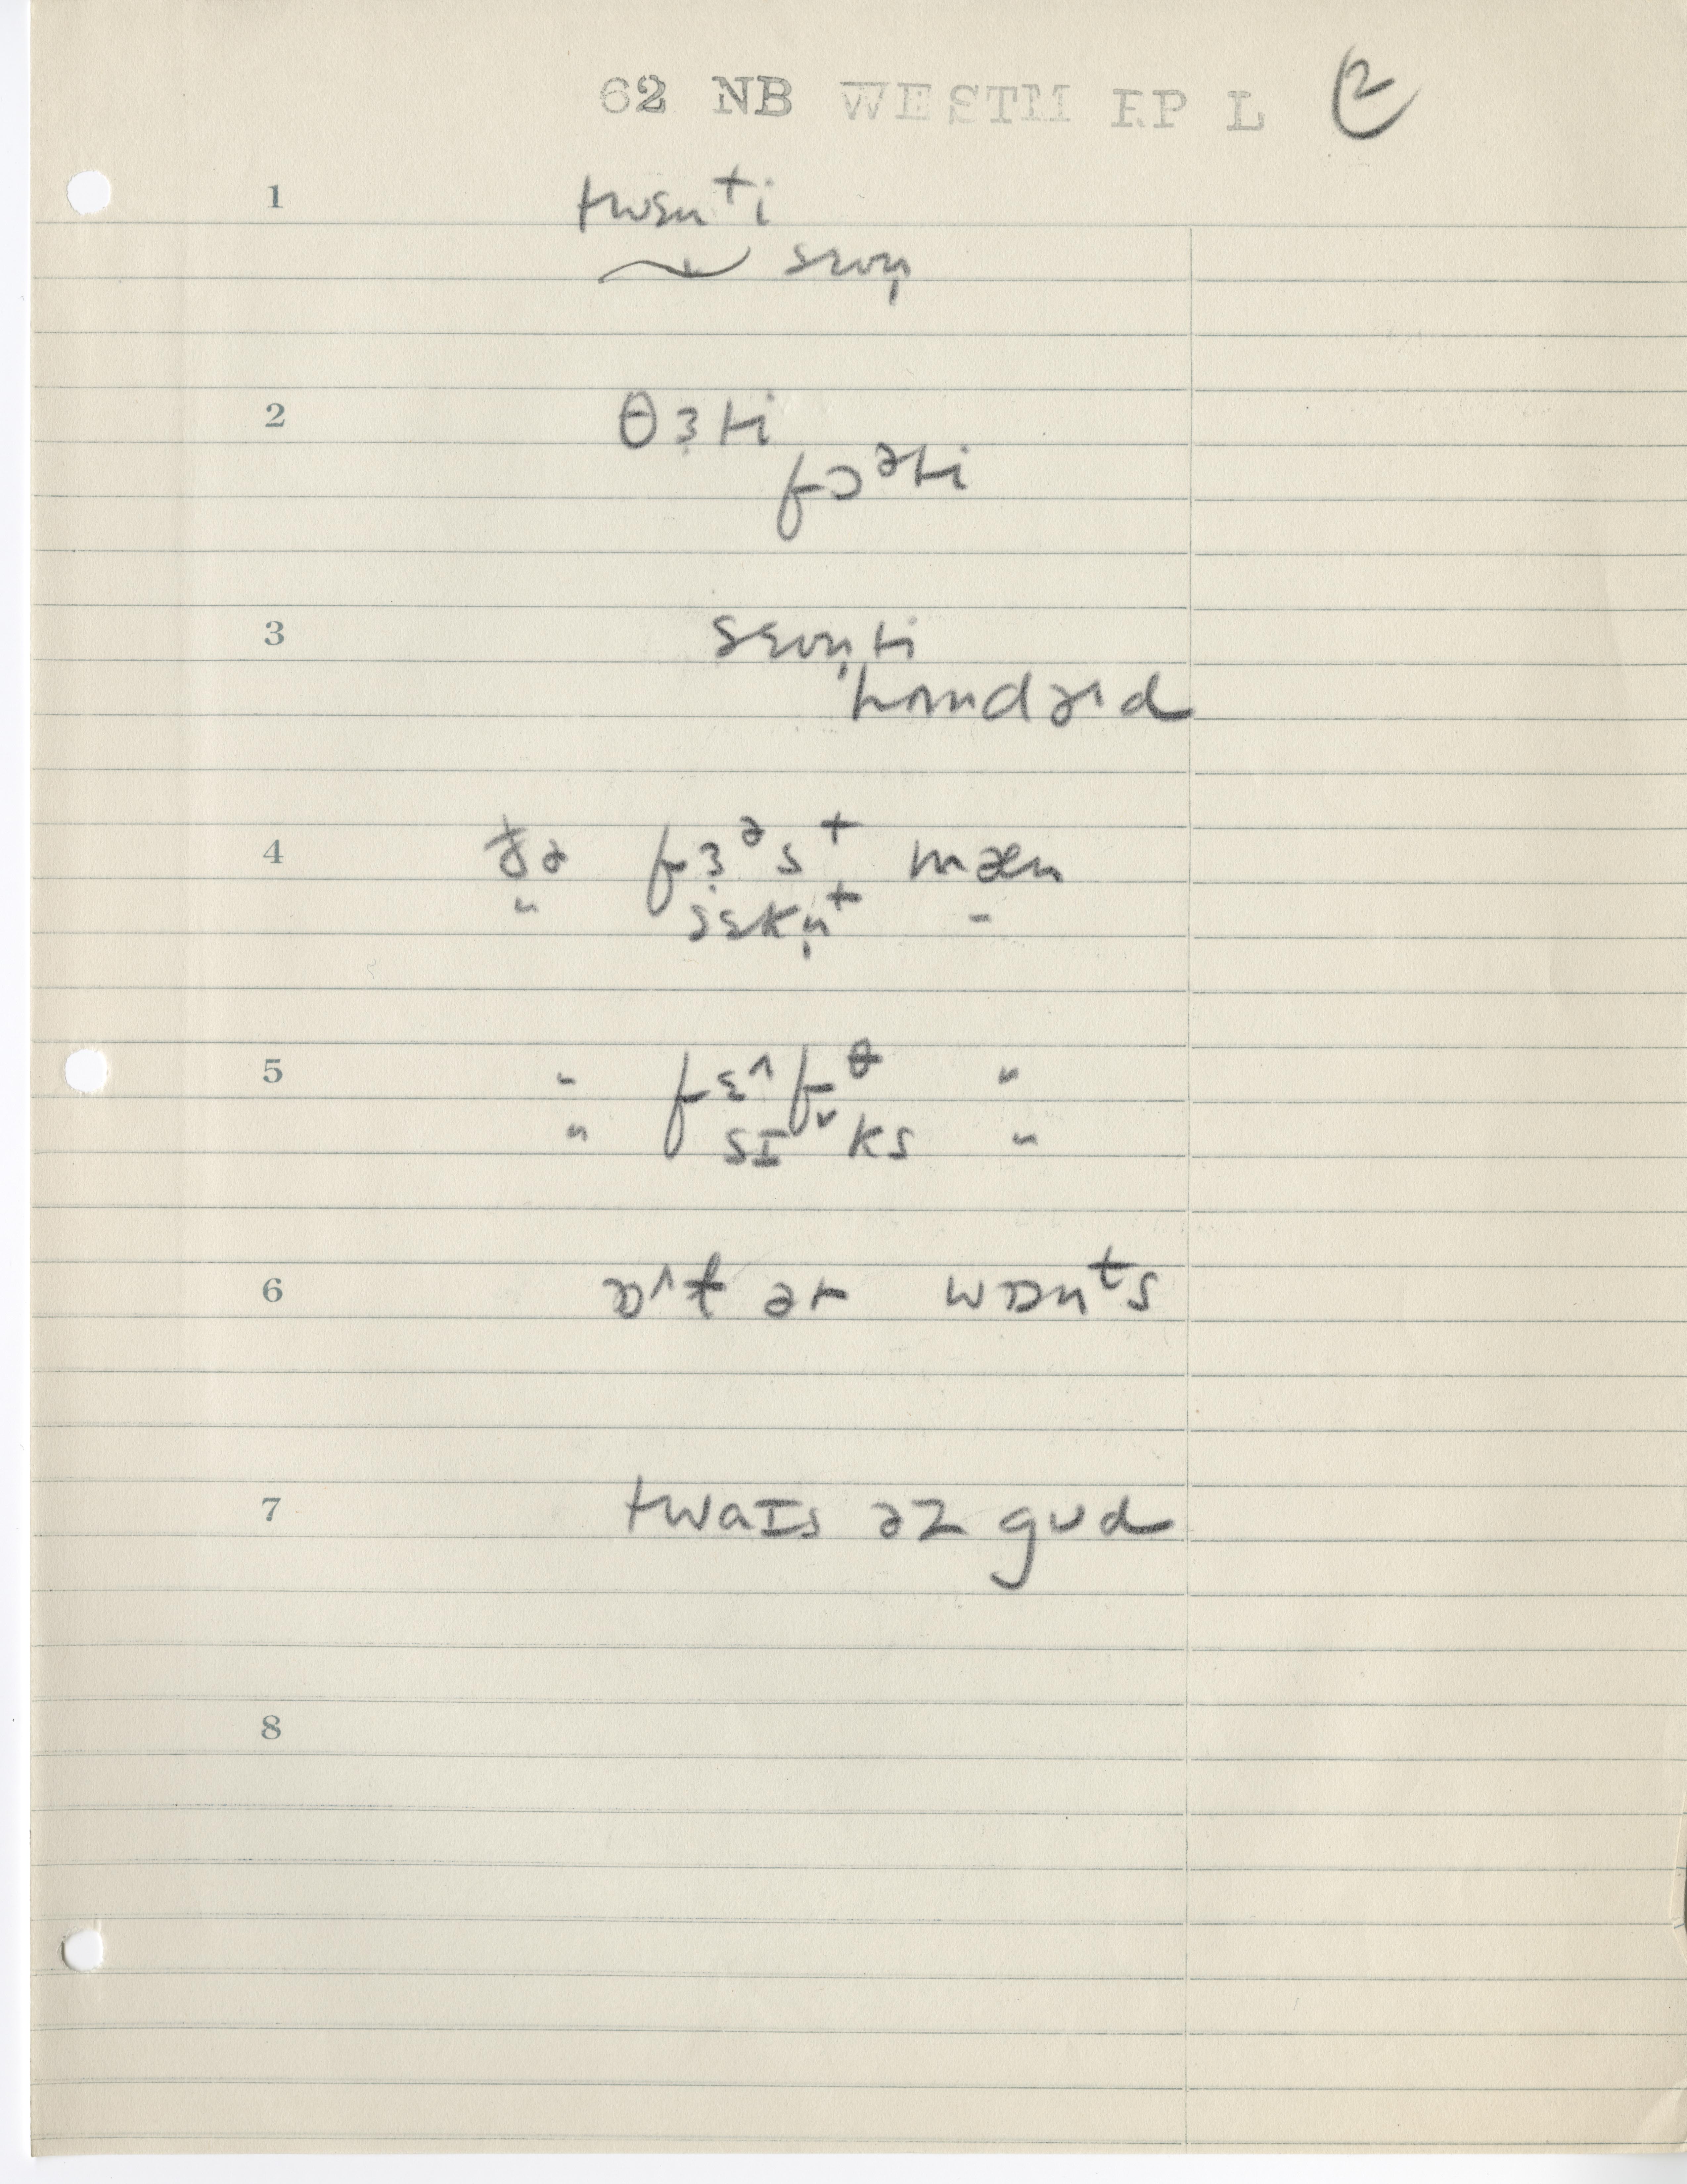 62 NB WESTM RP L 2
1 twɛnᵗi
sɛvn̩
2 θɜ̣ti
fɔᵊti
3 sɛvn̩ti
hʌndɚ˄d
4 ðə fɜ̣ᵊsᵗ mæn
" sɛkn̩ᵗ "
5 " fɛ˄fᶿ "
" sɪ˅ks "
6 ɒ˄t̬ ər wɒnᵗs
7 twaɪs əz gud
8